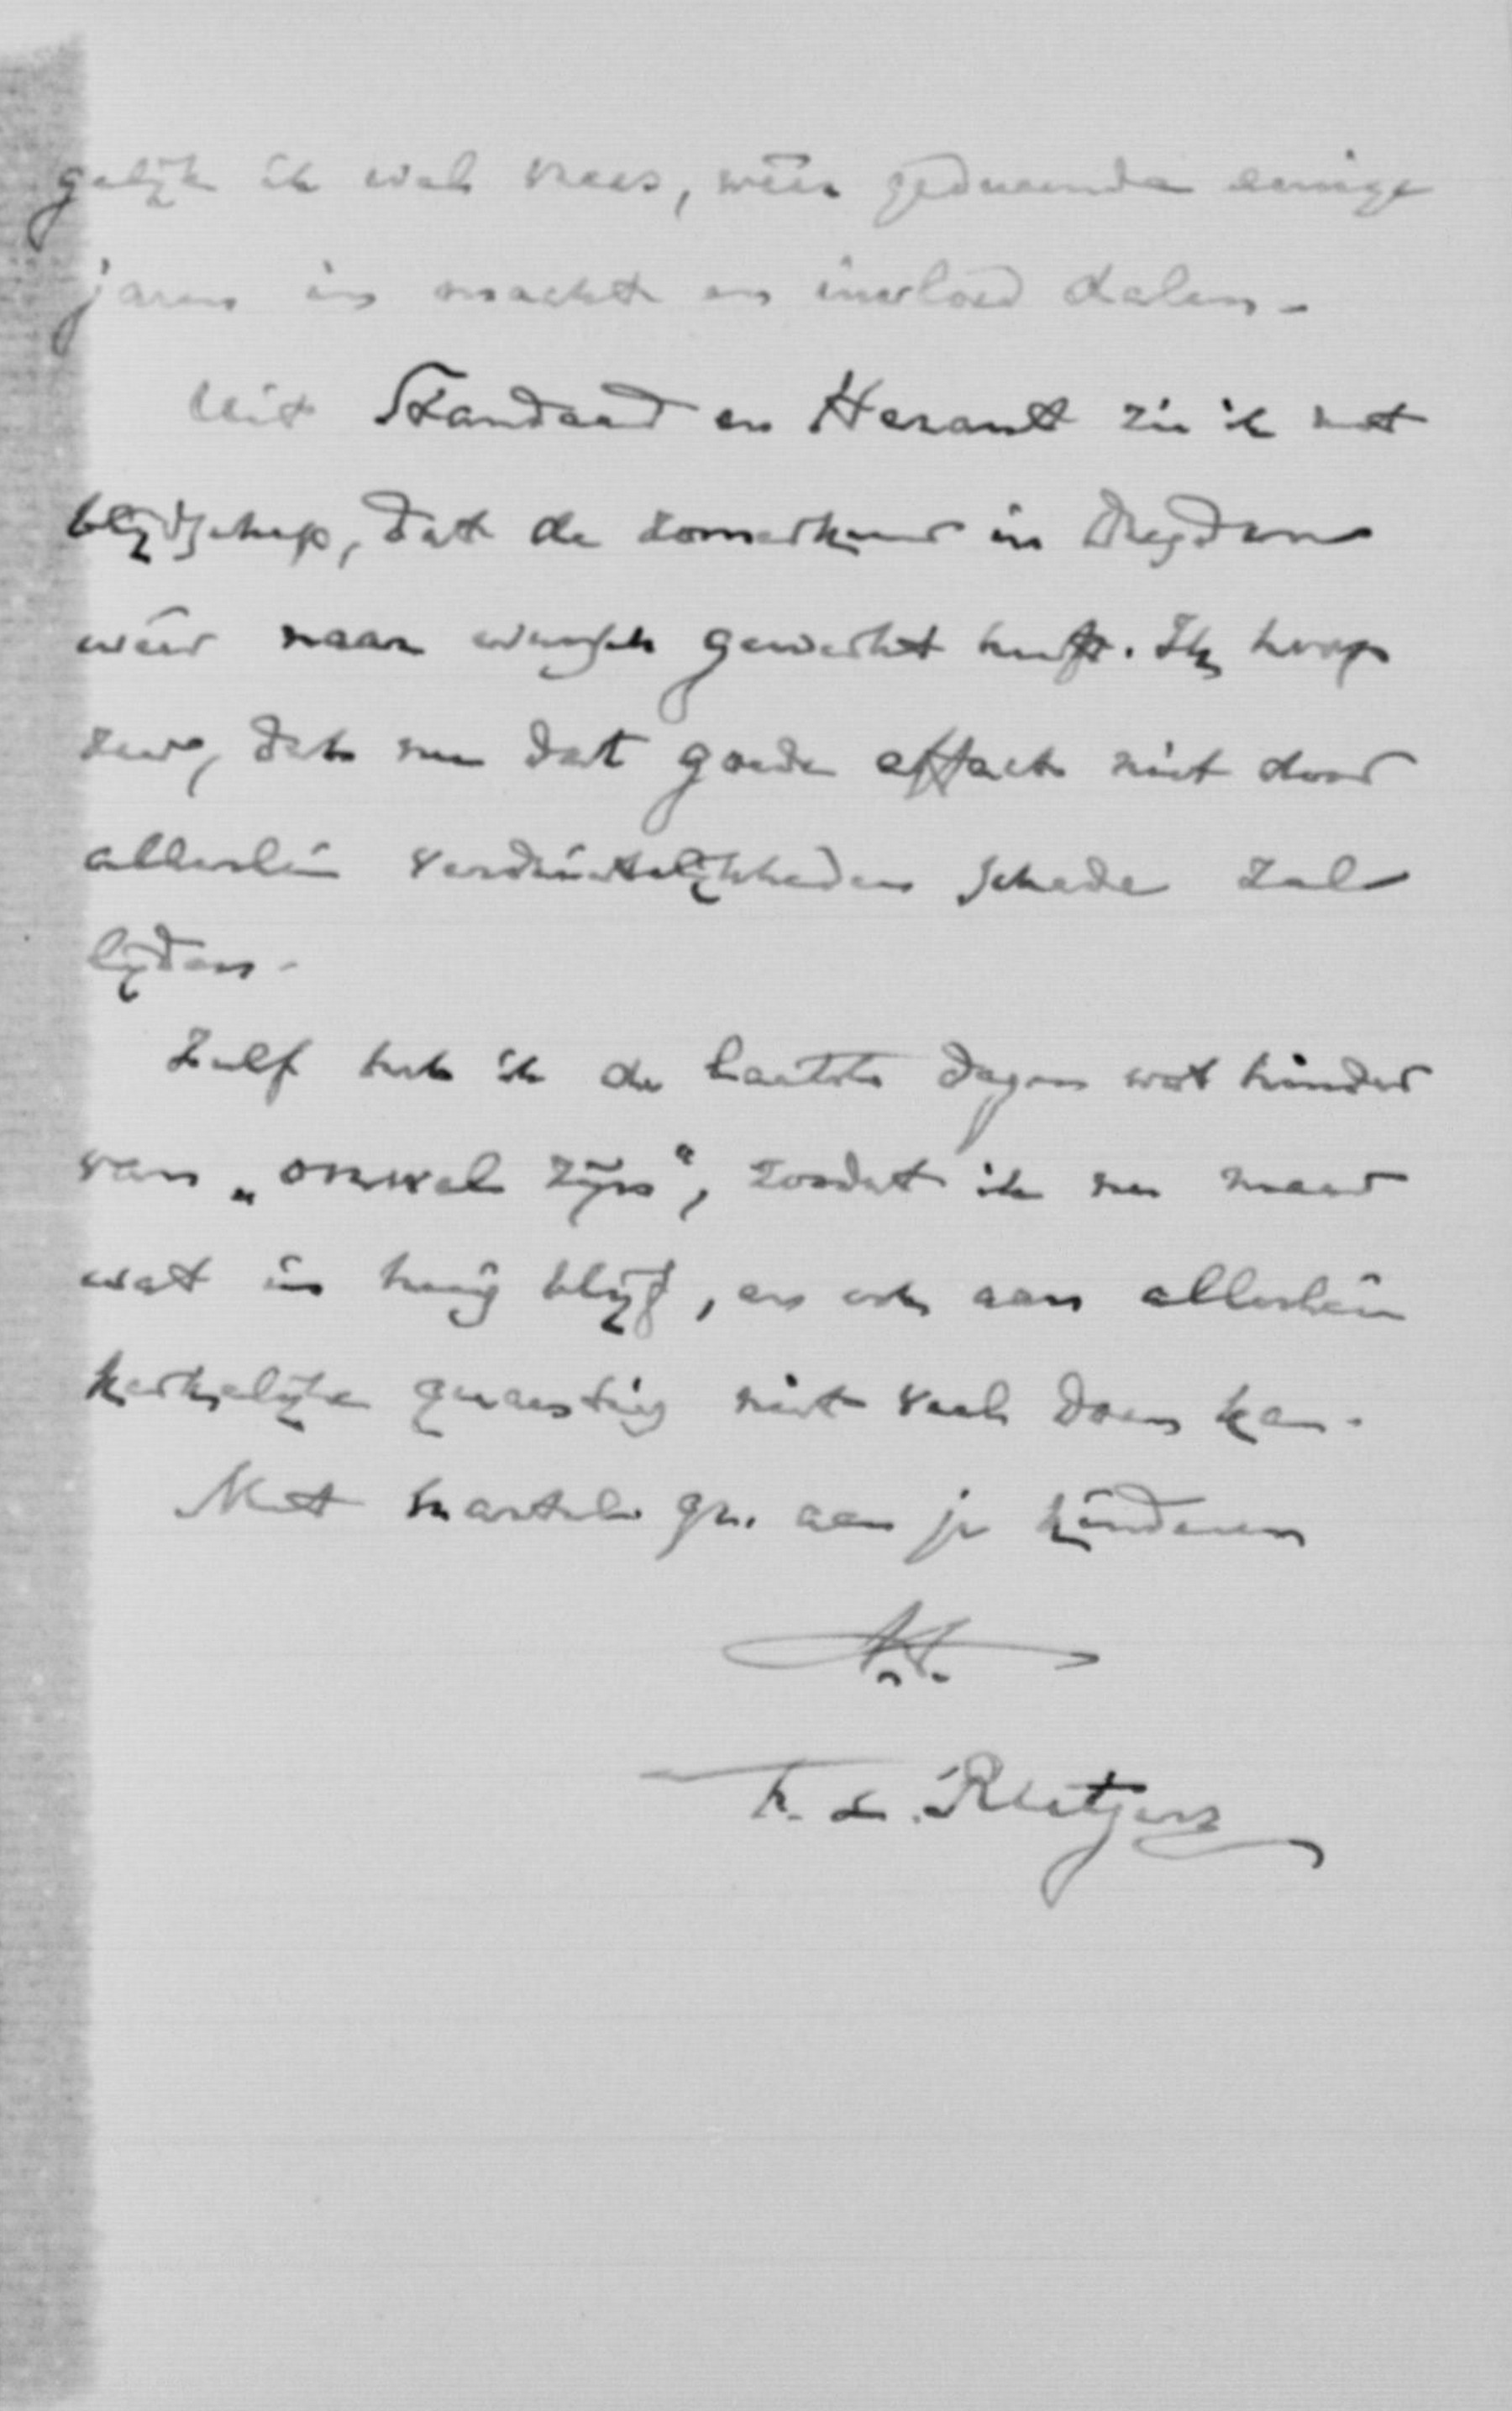 gelijk ik wel vrees, wéér gedurende eenige
jaren in macht en invloed dalen.
Uit Standaard en Heraut zie ik met
blijdschap, dat de zomerkuur in Dresden
wéér naar wensch gewerkt heeft. Ik hoop
zeer, dat nu dat goede effect niet door
allerlei verdrietelijkheden schade zal
lijden.
Zelf heb ik de laatste dagen wat hinder
van „onwel zijn“, zoodat ik nu maar
wat in huis blijf, en ook aan allerlei
kerkelijke quaesties niet veel doen kan.
Met hartel. gr. aan je kinderen
t.t.
F. L. Rutgers